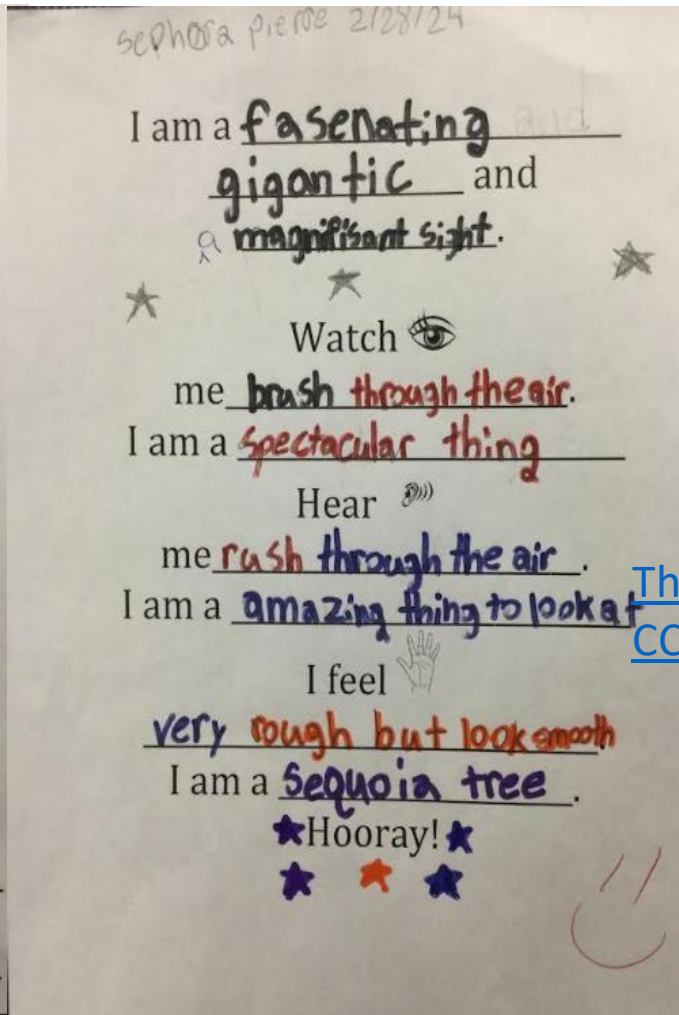 sephora pierre 2/28/24
I am a fasenating and
gigantic and
a magnifisant sight.
Watch
me brush through the air.
I am a spectacular thing
Hear
me rush through the air .
I am a amazing thing to look at
Th
CO
I feel
very rough but look smooth.
I am a Sequoia tree .
Hooray!